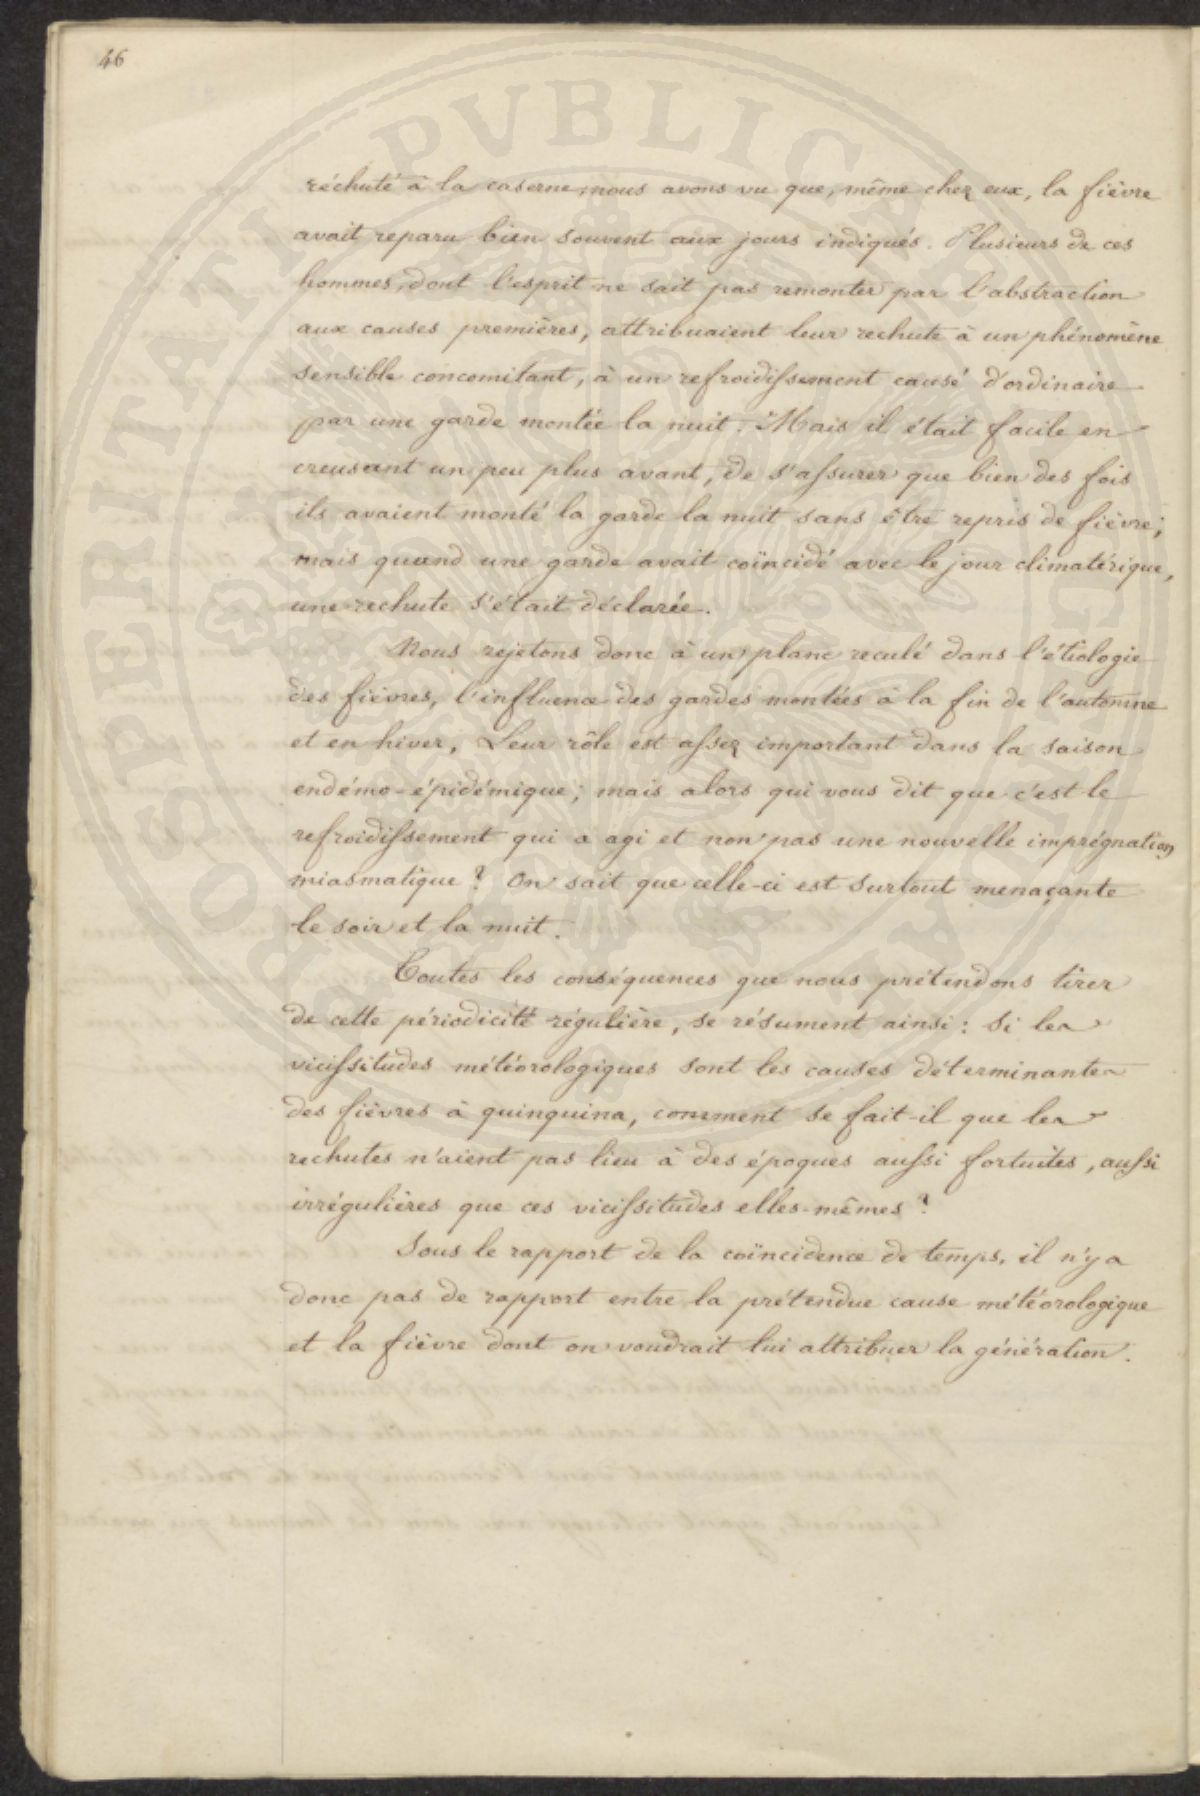 46
réchuté à la caserne, nous avons vu que, même chez eux, la fièvre
avait reparu bien souvent aux jours indiqués. Plusieurs de ces
hommes, dont l'esprit ne sait pas remonter par l'abstraction
aux causes premières, attribuaient leur rechute à un phénomène
sensible concomitant, à un refroidissement causé d'ordinaire
par une garde montée la nuit. Mais il était facile en
creusant un peu plus avant, de s'assurer que bien des fois
ils avaient monté la garde la nuit sans être repris de fièvre;
mais quand une garde avait coïncidé avec le jour climatérique,
une rechute s'était déclarée.
Nous rejetons donc à un plane reculé dans l'étiologie
des fièvres, l'influence des gardes montées à la fin de l'automne
et en hiver. Leur rôle est assez important dans la saison
endémo-épidémique; mais alors qui vous dit que c'est le
refroidissement qui a agi et non pas une nouvelle imprégnation
miasmatique? On sait que celle-ci est surtout menaçante
le soir et la nuit.
Toutes les conséquences que nous prétendons tirer
de cette périodicité régulière, se résument ainsi: Si les
vicissitudes météorologiques sont les causes déterminantes
des fièvres à quinquina, comment se fait-il que les
rechutes n'aient pas lieu à des époques aussi fortuites, aussi
irrégulières que ces vicissitudes elles-mêmes?
Sous le rapport de la coïncidence de temps, il n'y a
donc pas de rapport entre la prétendue cause météorologique
et la fièvre dont on voudrait lui attribuer la génération.
PROSPERITATI PUBLICAE